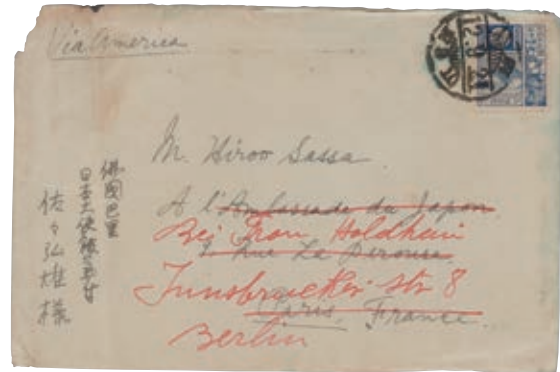 Via America
M. Hiroo Sassa
A l'Ambassade du Japon
Bei Frau Holdheim
7 Rue La Pérouse
Innsbrucker Str 8
Paris. France.
Berlin
佛國巴里
日本大使館気付
佐々弘雄様